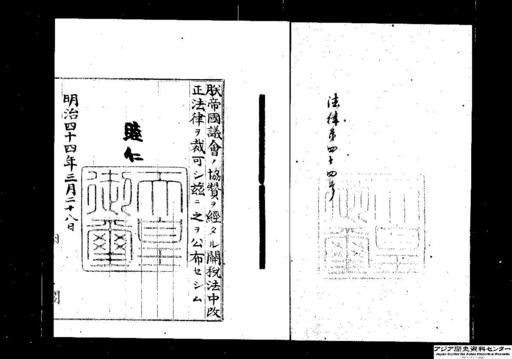 法律第四十四号
朕帝國議會ノ協贊ヲ經タル關税法中改
正法律ヲ裁可シ茲ニ之ヲ公布セシム
睦仁
天皇御璽
明治四十四年三月二十八日
内閣
アジア歴史資料センター
Japan Center for Asian Historical Records